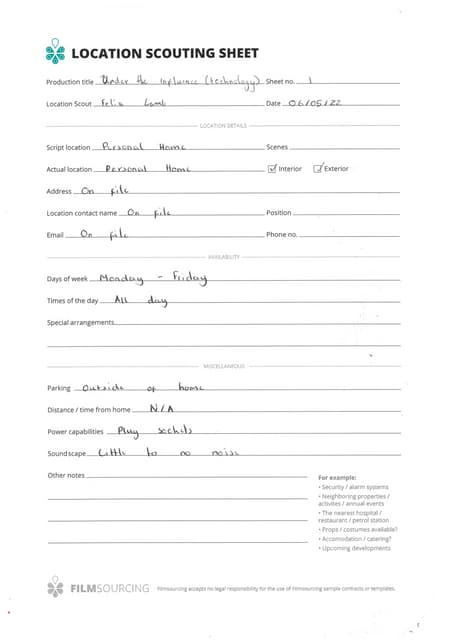 LOCATION SCOUTING SHEET
Production title Under the Influence (technology) Sheet no. 1
Location Scout Felix Lamb Date 06/05/22
LOCATION DETAILS
Script location Personal Home Scenes
Actual location Personal Home Interior Exterior
Address On file
Location contact name On file Position
Email On file Phone no.
AVAILABILITY
Days of week Monday - Friday
Times of the day All day
Special arrangements
MISCELLANEOUS
Parking Outside of home
Distance / time from home N/A
Power capabilities Plug sockets
Soundscape Little to no noise
Other notes
For example:
• Security / alarm systems
• Neighboring properties /
activites / annual events
• The nearest hospital /
restaurant / petrol station
• Props / costumes available?
• Accomodation / catering?
• Upcoming developments
FILMSOURCING Filmsourcing accepts no legal responsibility for the use of Filmsourcing sample contracts or templates.